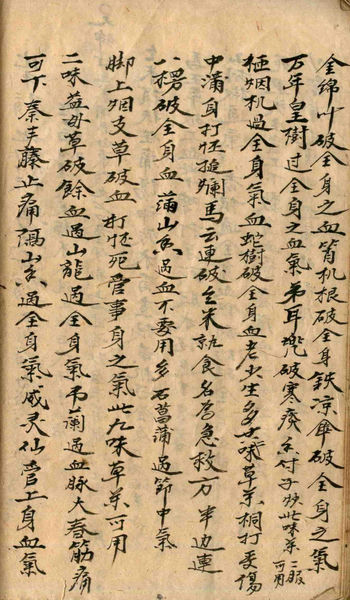 金綿叶破全身之血背机根破全身鉄涼傘破全身之氣
万年皇樹过全身之血氣弟耳兜破寒痰香付子炒此味薬二服可用
極烟机過全身氣血蛇樹破全身血老少生多
中滿身打怌搥爛馬云連破立米就食名為急救方半边連
八楞破全身血滿山香過血不要用多石菖蒲過節中氣
脚上烟支草破血打怌死管事身之氣此九味草薬可用
二味益母草破餘血過山龍過全身氣吊蘭過血脉大春筋痛
可下秦艽藤止痛隔山香過全身氣威灵仙管上身血氣